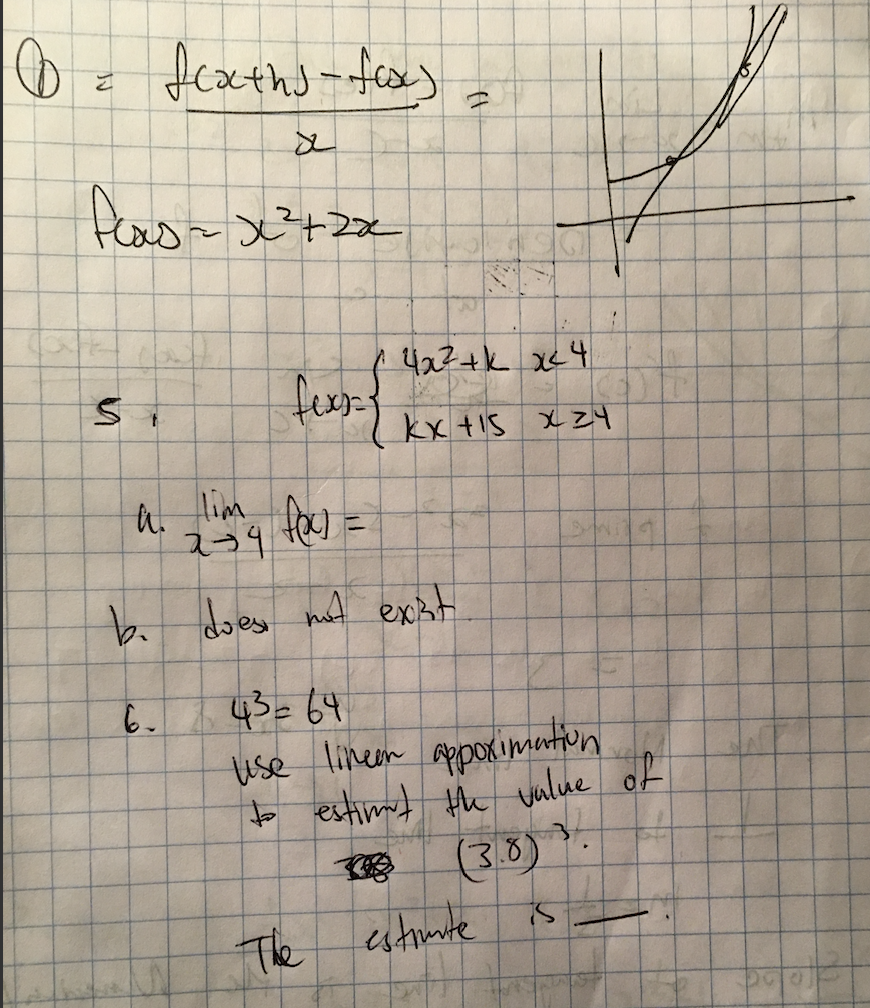 ① = f(x+h) - f(x) / x =
f(x) = x² + 2x
5. f(x) = { 4x² + k x < 4
kx + 15 x ≥ 4
a. lim x→4 f(x) =
b. does not exist
6. 4³ = 64
use linear appoximation
to estimt the value of
(3.8)³.
The estimate is ___.